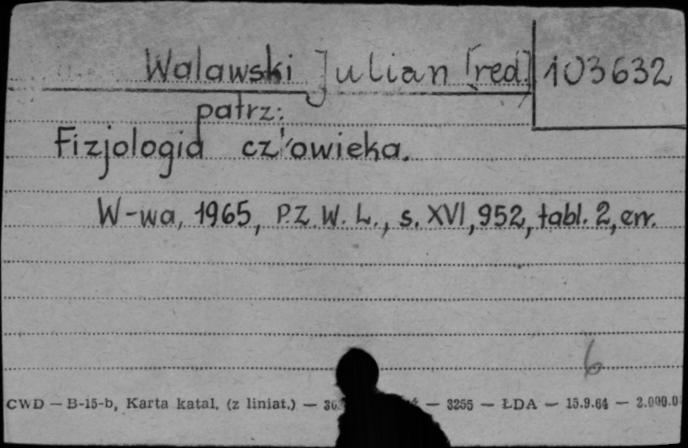 Walawski Julian [red.] 103632
patrz:
Fizjologia cz'owieka.
W-wa, 1965, P.Z.W.L., s. XVI, 952, tabl. 2, err.
6
CWD — B-15-b, Karta katal. (z liniat.) — — 3255 — ŁDA — 15.9.64 — 2.000.0